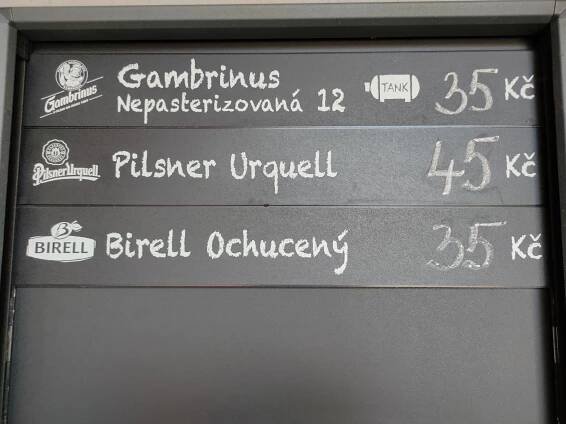 Gambrinus
Gambrinus
Nepasterizovaná 12
TANK
35 Kč
Pilsner Urquell
Pilsner Urquell
45 Kč
BIRELL
Birell Ochucený
35 Kč